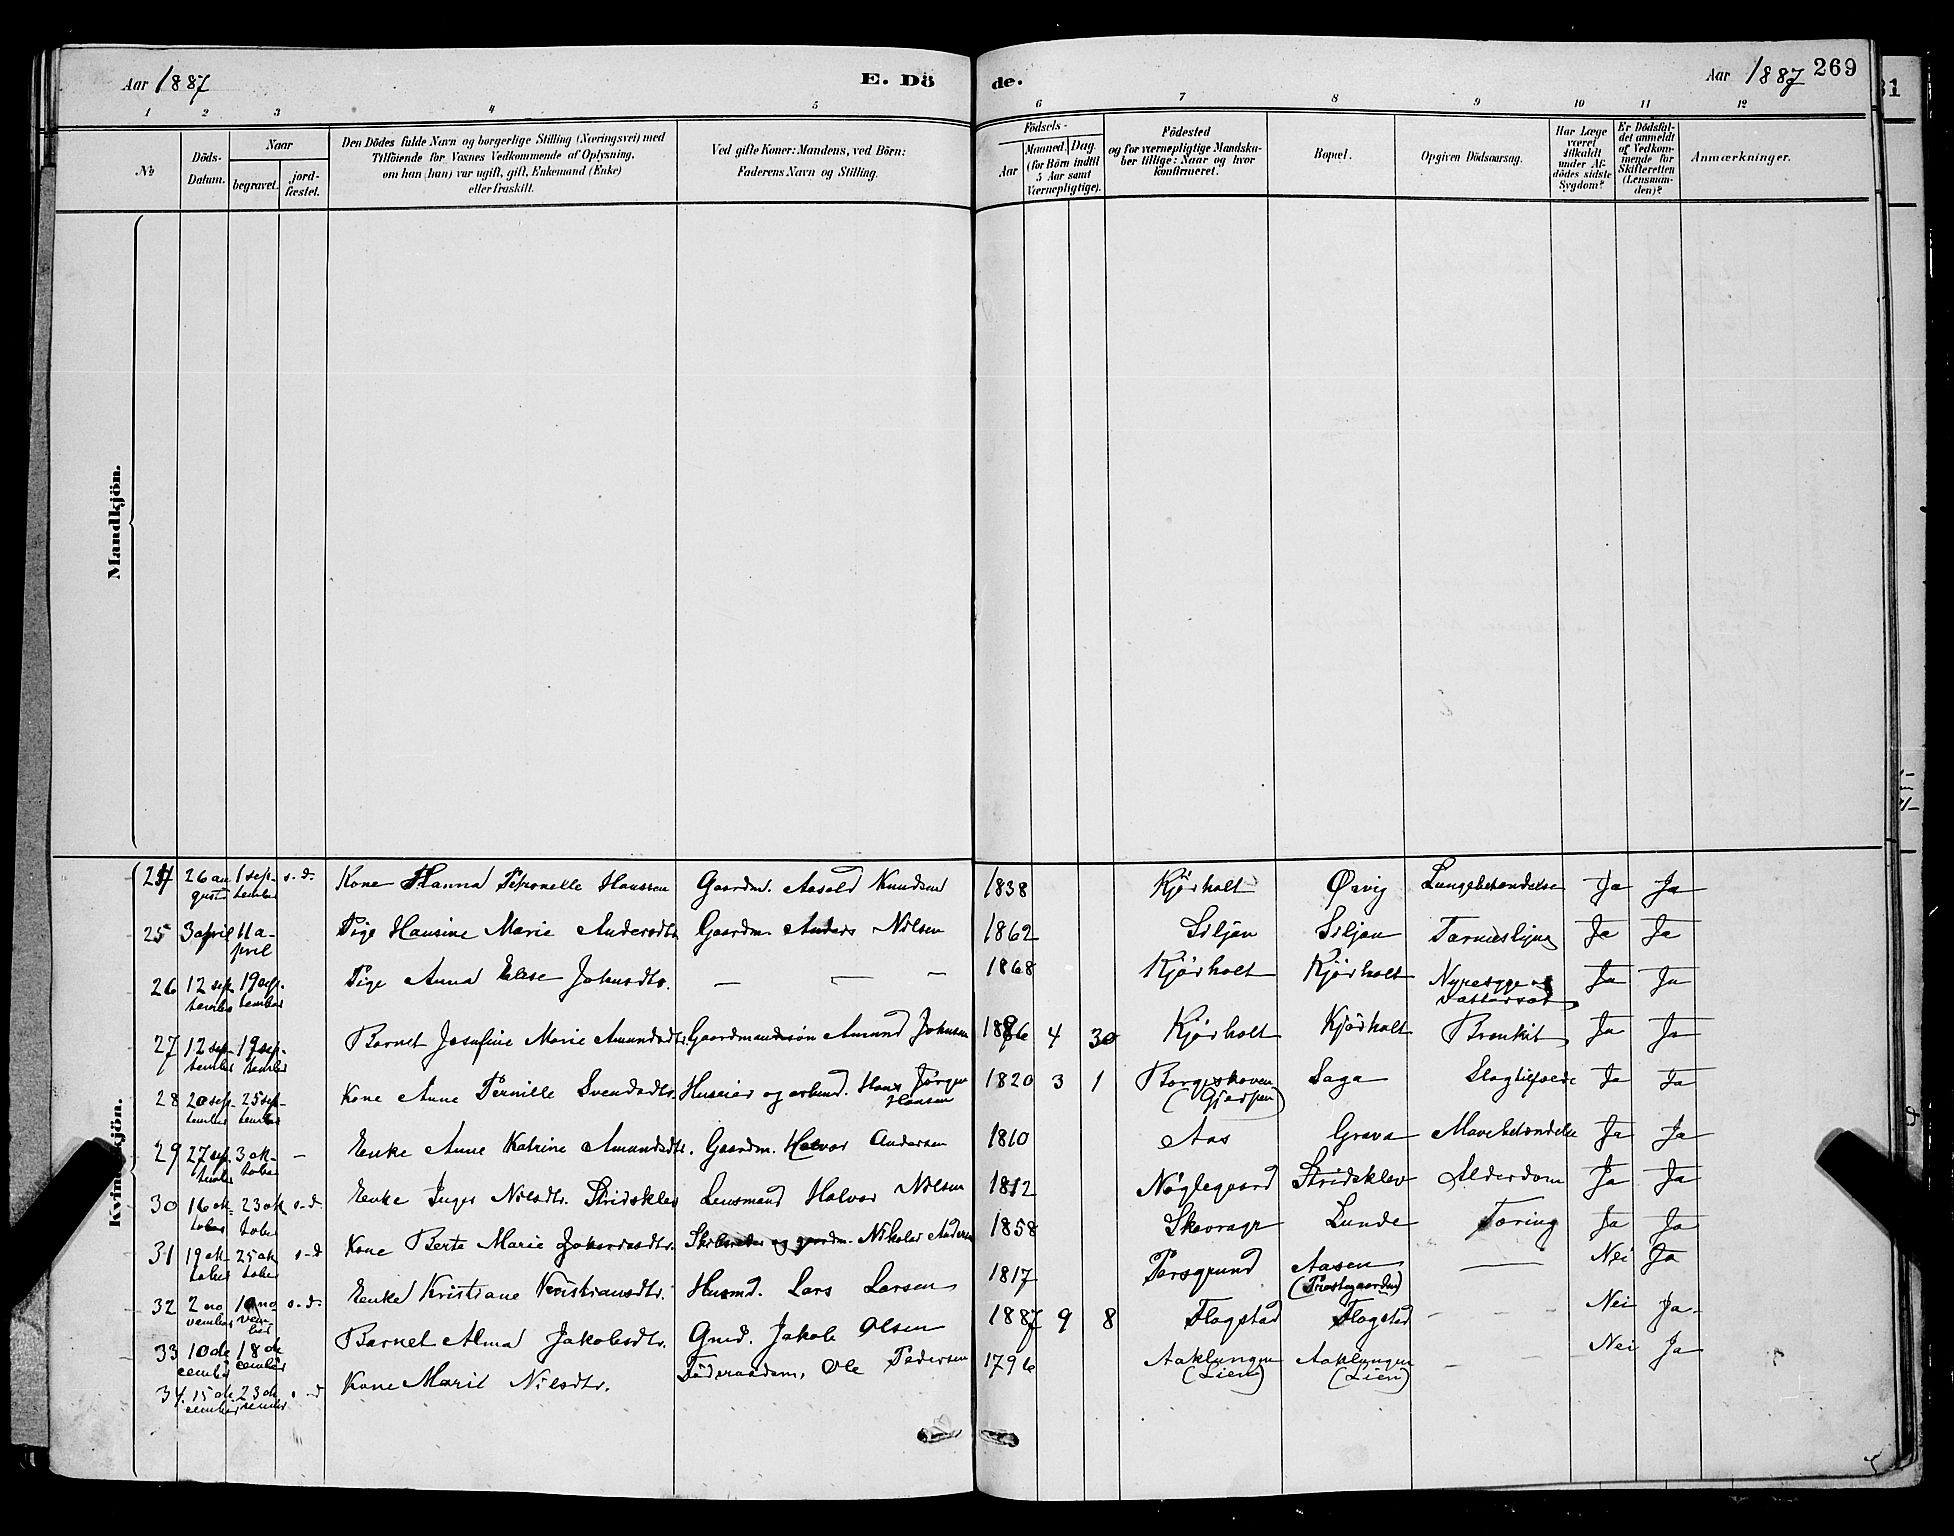 Aar 1887
E. Dö
de.
Aar 1887
269
1 2 3 4 5 6 7 8 9 10 11 12
№
Döds-
Datum.
Naar
begravet.
jord-
fæstet.
Den Dödes fulde Navn og borgerlige Stilling (Næringsvei) med
Tilföiende for Voxnes Vedkommende af Oplysning,
om han (hun) var ugift, gift, Enkemand (Enke)
eller fraskilt.
Ved gifte Koner: Mandens, ved Börn:
Faderens Navn og Stilling.
Födsels-
Aar
Maaned. Dag.
(for Börn indtil
5 Aar samt
Værnepligtige).
Födested
og for værnepligtige Mandska-
ber tillige: Naar og hvor
konfirmeret.
Bopæl.
Opgiven Dödsaarsag.
Har Læge
været
tilkaldt
under Af-
dödes sidste
Sygdom?
Er Dödsfal-
det anmeldt
af Vedkom-
mende for
Skifteretten
(Lensman-
den)?
Anmærkninger.
Mandkjön.
Kvindekjön.
26 august 1 september s. d. Kone Hanna Petronelle Hansen Gaardm. Aasold Knudsen 1838 Kjørholt Ørvig Lungebetændelse Ja Ja
25 3 april 11 april Pige Hansine Marie Andersdtr. Gaardm. Anders Nilsen 1862 Siljan Siljan Ja Ja
26 12 september 19 september Pige Anna Elise Johnsdtr. — — — 1868 Kjørholt Kjørholt Nyresyge og Vattersot Ja Ja
27 12 september 19 september Barnet Josefine Marie Amundsdtr. Gaardmandssøn Amund Johnsen 1886 4 30 Kjørholt Kjørholt Bronkit Ja Ja
28 20 september 25 september Kone Anne Pernille Svendsdtr. Huseier og arbmd. Hans Jørgen Hansen 1820 3 1 Borgeskoven (Gjerpen) Saga Slagtilfælde Ja Ja
29 27 september 3 oktober — Enke Anne Katrine Amundsdtr. Gaardm. Halvor Andersen 1810 Aas Grava Mavebetændelse Ja Ja
30 16 oktober 23 oktober s. d. Enke Inger Nilsdtr. Stridsklev Lensmand Halvor Nilsen 1812 Nøglegaard Stridsklev Alderdom Ja Ja
31 19 oktober 25 oktober s. d. Kone Berte Marie og gaardm. Nikolai Andersen 1858 Skavrager Lunde Tæring Ja Ja
32 2 november november s. d. Enke Kristiane Kristiansdtr. Husmd. Lars Larsen 1817 Porsgrund Aasen (Præstegaarden) — Nei Ja
33 10 december 18 december Barnet Alma Jakobsdtr. Gmd. Jakob Olsen 1887 9 8 Flogstad Flogstad — — Nei Ja
34 15 december 23 december s. d. Kone Maril Nilsdtr. Föderaadsm. Ole Pedersen 1796 Aaklungen (Lien) Aaklungen (Lien) — — Nei Ja